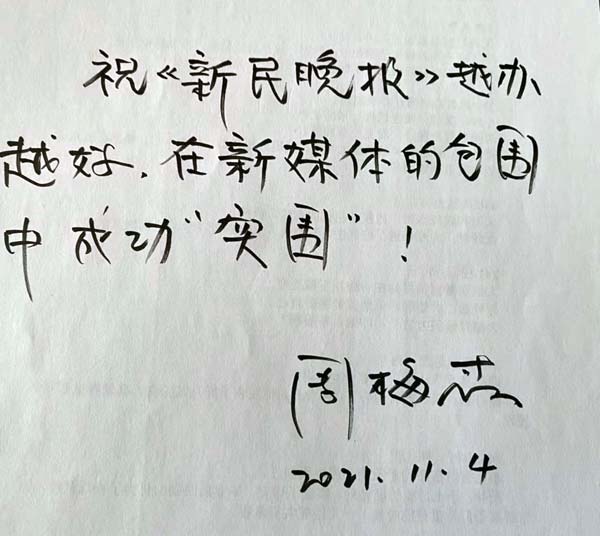 祝《新民晚报》越办
越好，在新媒体的包围
中成功“突围”！
周梅森
2021.11.4